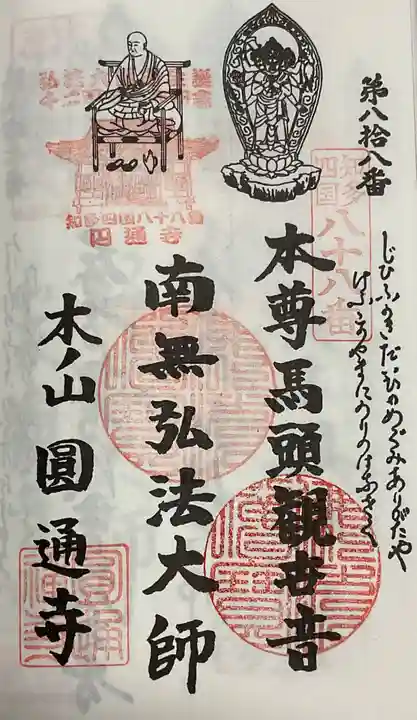 第八拾八番
知多四国
八十八番
じひふかきだいひのめぐみありがたや
けふこのやまにのりのはなさく
本尊馬頭観世音
南無弘法大師
木ノ山 圓通寺
知多四国八十八番
円通寺
圓通寺